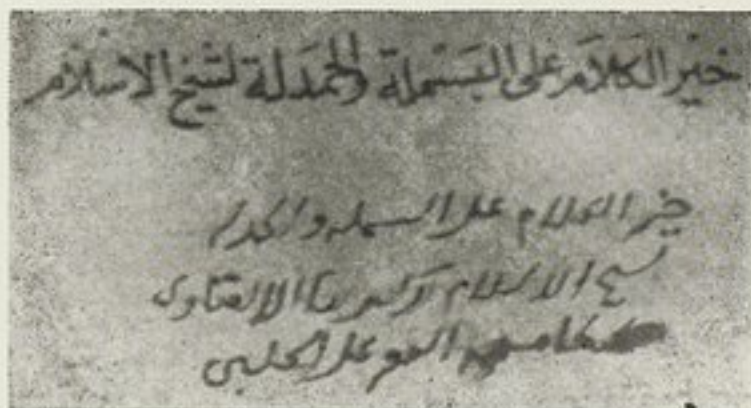 خير الكلام على البسملة والحمدلة لشيخ الاسلام
خير الكلام على البسمله والحمدله
شيخ الاسلام زكريا الانصارى
الفقير على الحلبى